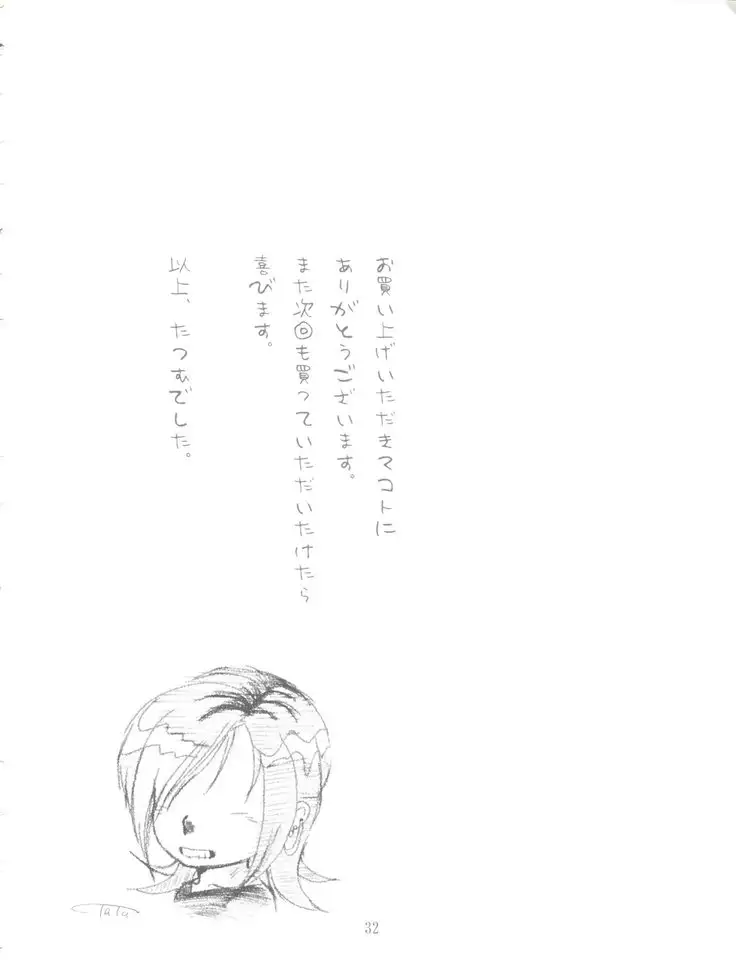 お買い上げいただきマコトに
ありがとうございます。
また次回も買っていただいたけたら
喜びます。
以上、たつむでした。
TaTu
32